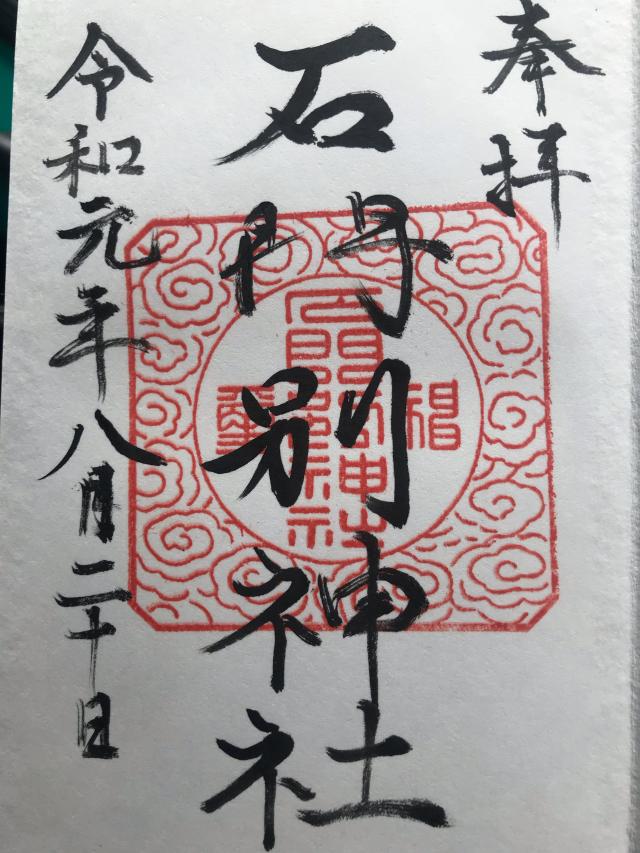 奉拝
石門別神社
令和元年八月二十日